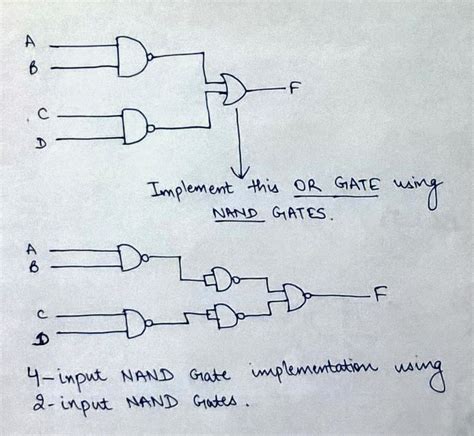 A
B
C
D
F
Implement this OR GATE using
NAND GATES.
A
B
C
D
F
4-input NAND Gate implementation using
2-input NAND Gates.